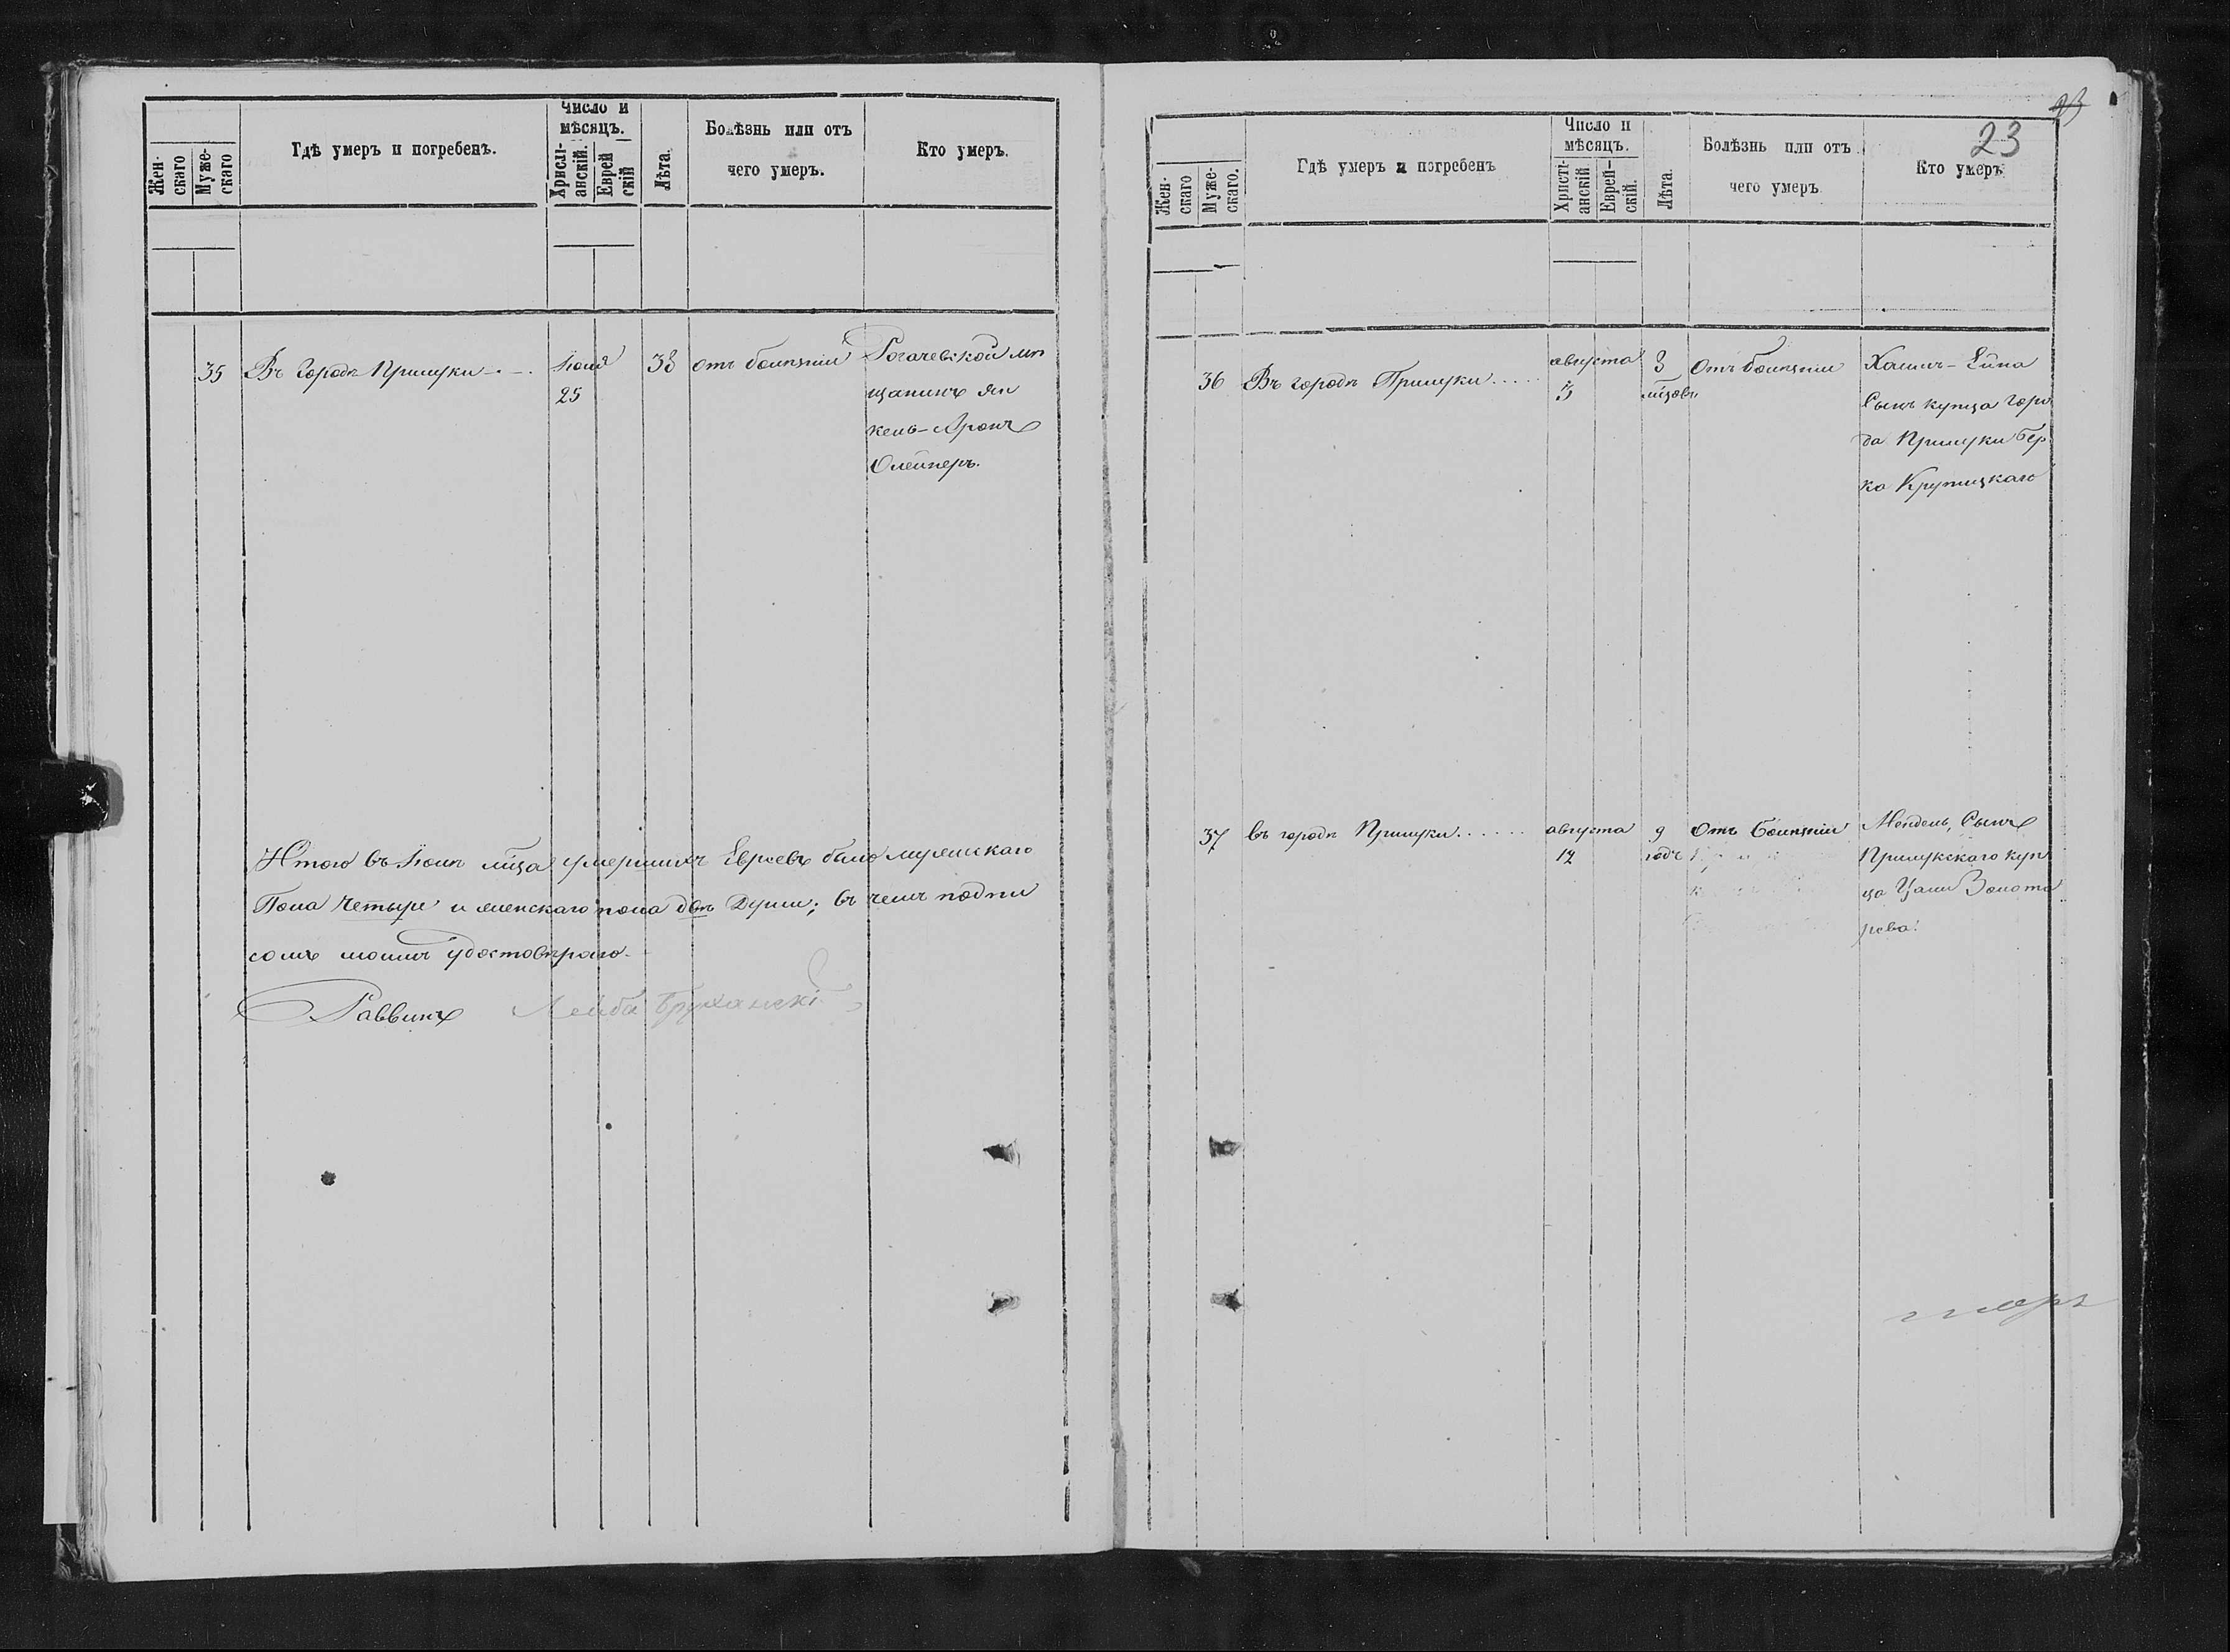 Жен-
скаго
Муже-
скаго
Гдѣ умеръ и погребенъ.
Число и
мѣсяцъ.
Христі-
анскій.
Еврей
скій
Лѣта.
Болѣзнь или отъ
чего умеръ.
Кто умеръ.
35 Въ городѣ Прилуки
Іюля
25
33
отъ болѣзни
Рогачевской мѣ
щанинъ Ян
кель-Аронъ
Олейнеръ.
Итого въ Іюлѣ м̃ца умершихъ Евреевъ было мужескаго
Пола четыре и женскаго пола двѣ души; въ чемъ подпи
сомъ моимъ удостовѣряю.
Раввинъ Лейба
23
23
Жен-
скаго
Муже-
скаго.
Гдѣ умеръ и погребенъ
Число и
мѣсяцъ.
Христі-
анскій
Еврей-
скій.
Лѣта.
Болѣзнь или отъ
чего умеръ
Кто умеръ
36 Въ городѣ Прилуки.....
августа
3
3
м̃цовъ
Отъ болѣзни
Хаимъ-Ейна
Сынъ купца горо
да Прилуки Бер
ка Крупицкаго
37 въ городѣ Прилуки......
августа
12
9
годъ
Отъ болѣзни
Мендель, Сынъ
Прилукскаго куп
ца Цали Золота
рева.